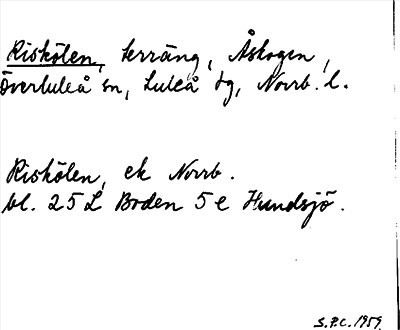 Riskölen, terräng, Åskogen,
Överluleå sn, Luleå tg, Norrb. l.
Riskölen, ek Norrb.
bl. 25 L Boden 5 e Hundsjö.
S.P.C. 1959